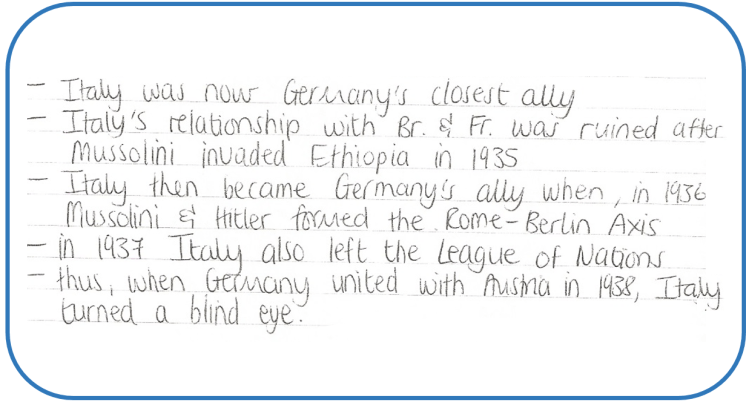 - Italy was now Germany's closest ally
- Italy's relationship with Br. & Fr. was ruined after
Mussolini invaded Ethiopia in 1935
- Italy then became Germany's ally when, in 1936
Mussolini & Hitler formed the Rome-Berlin Axis
- in 1937 Italy also left the League of Nations
- thus, when Germany united with Austria in 1938, Italy
turned a blind eye.